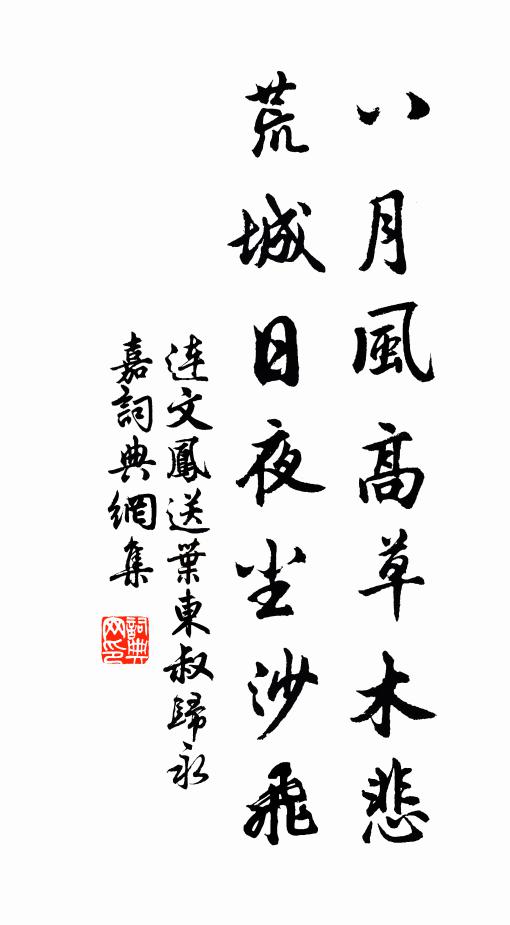 八月風高草木悲
荒城日夜尘沙飛
连文鳳送葉東叔歸永
嘉詞典網集
詞典
网印